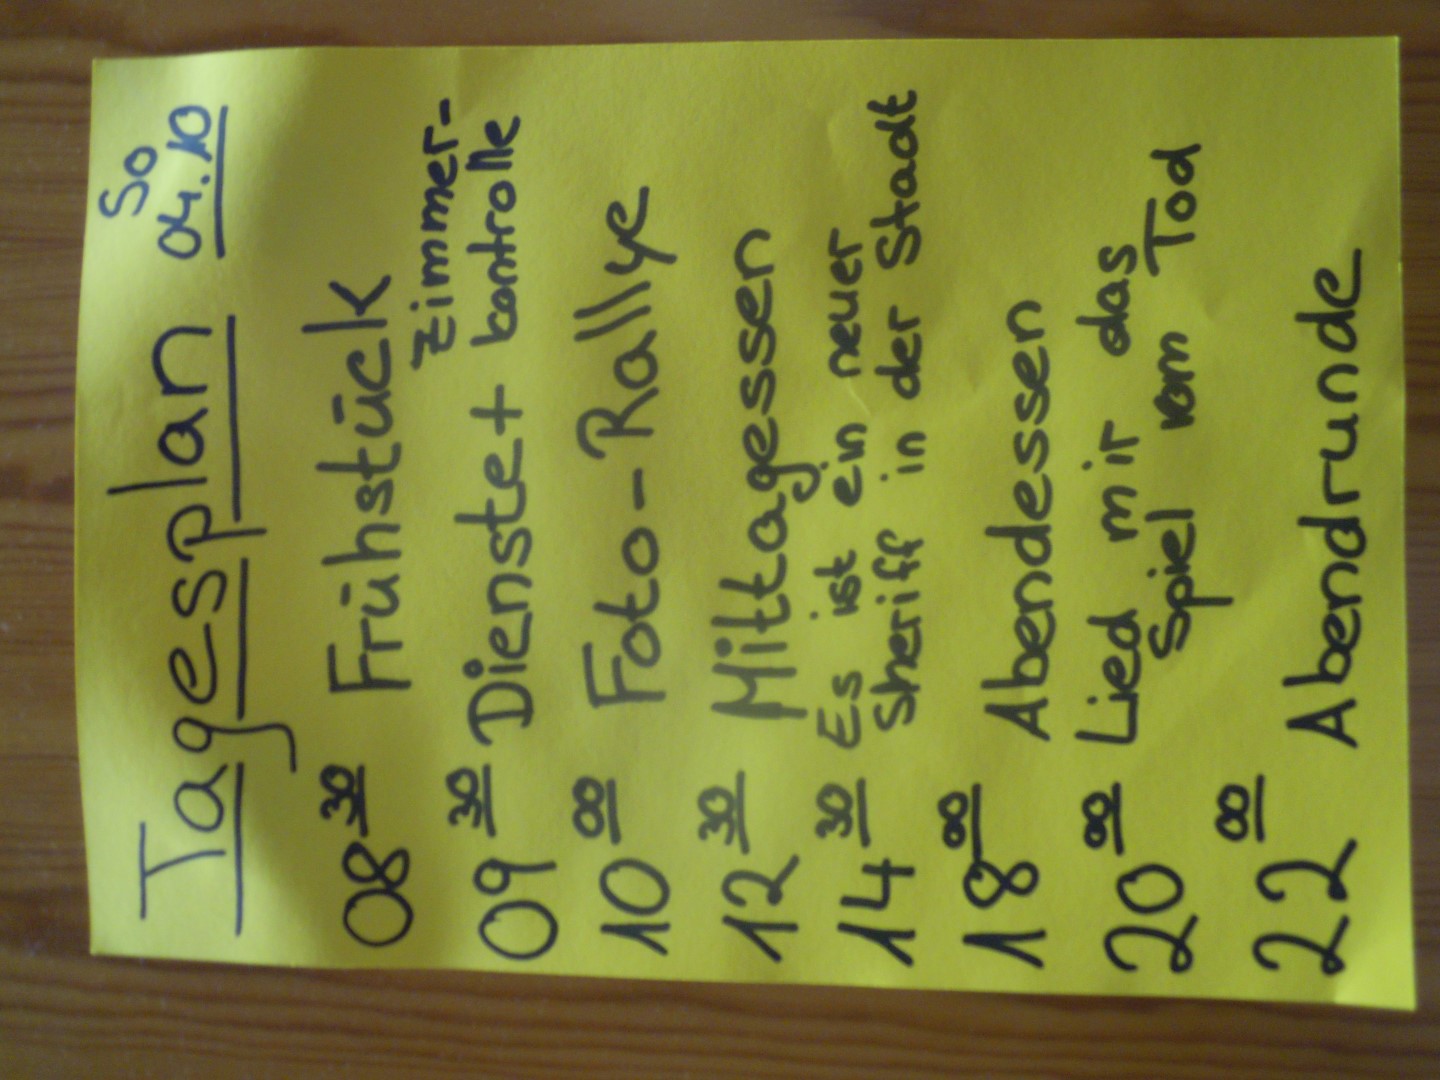 Tagesplan So 04.10
08 30 Frühstück
09 30 Dienste + Zimmer-
kontrolle
10 00 Foto-Rallye
12 30 Mittagessen
14 30 Es ist ein neuer
Sheriff in der Stadt
18 00 Abendessen
20 00 Lied mir das
Spiel vom Tod
22 00 Abendrunde